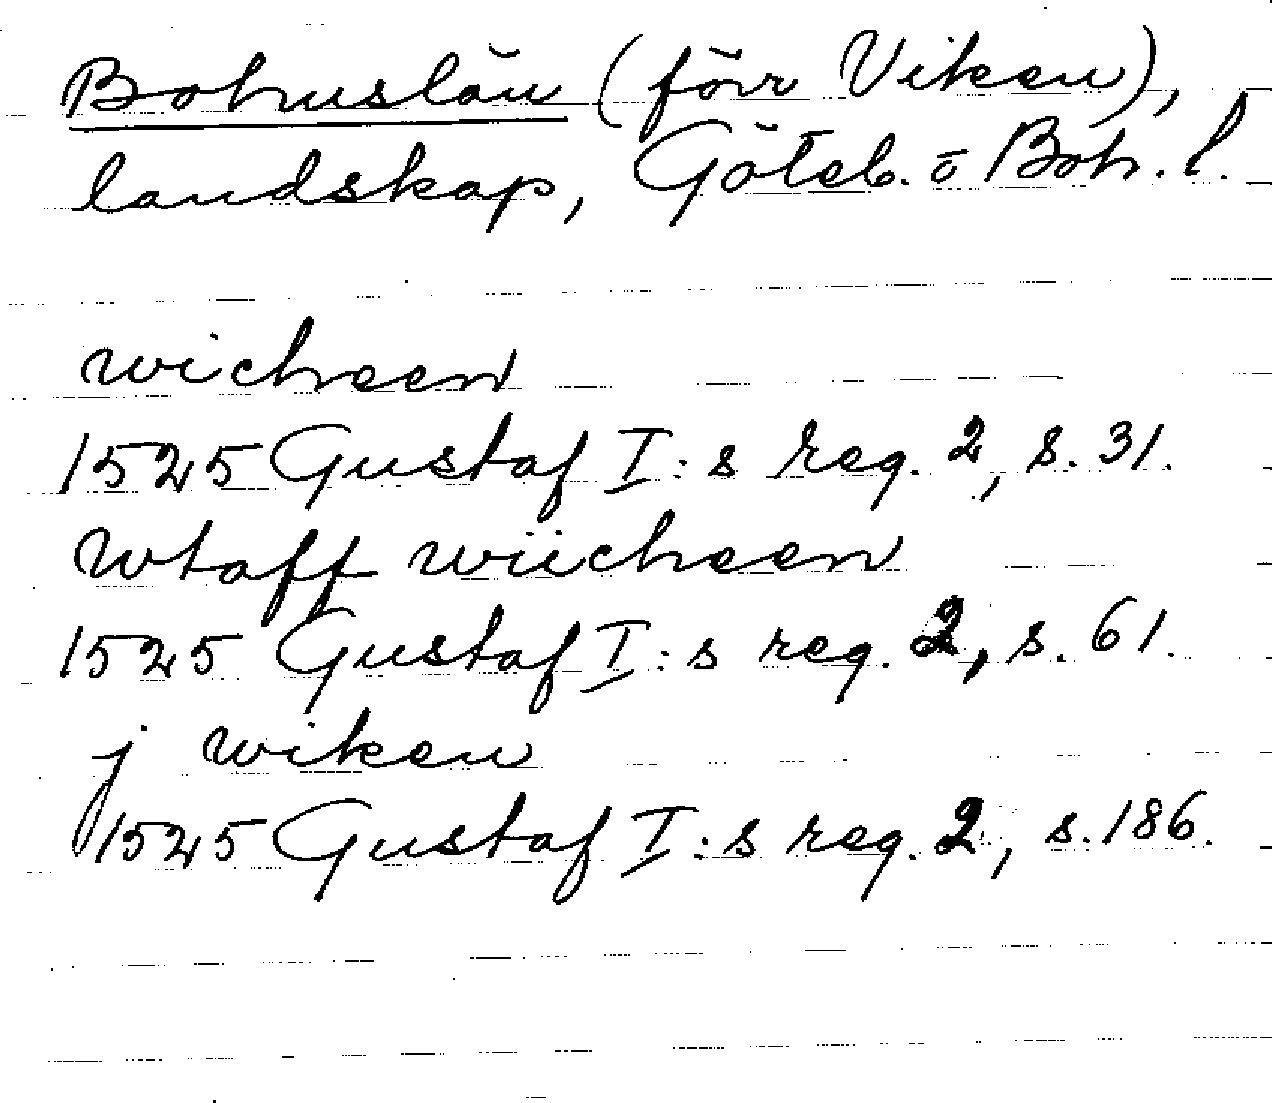 Bohuslän (förr Viken),
landskap, Göteb. o Boh. l.
wicheen
1525 Gustaf I:s reg. 2, s. 31.
wtaff wiicheen
1525 Gustaf I:s reg. 2, s. 61.
j wiken
1525 Gustaf I:s reg. 2, s. 186.